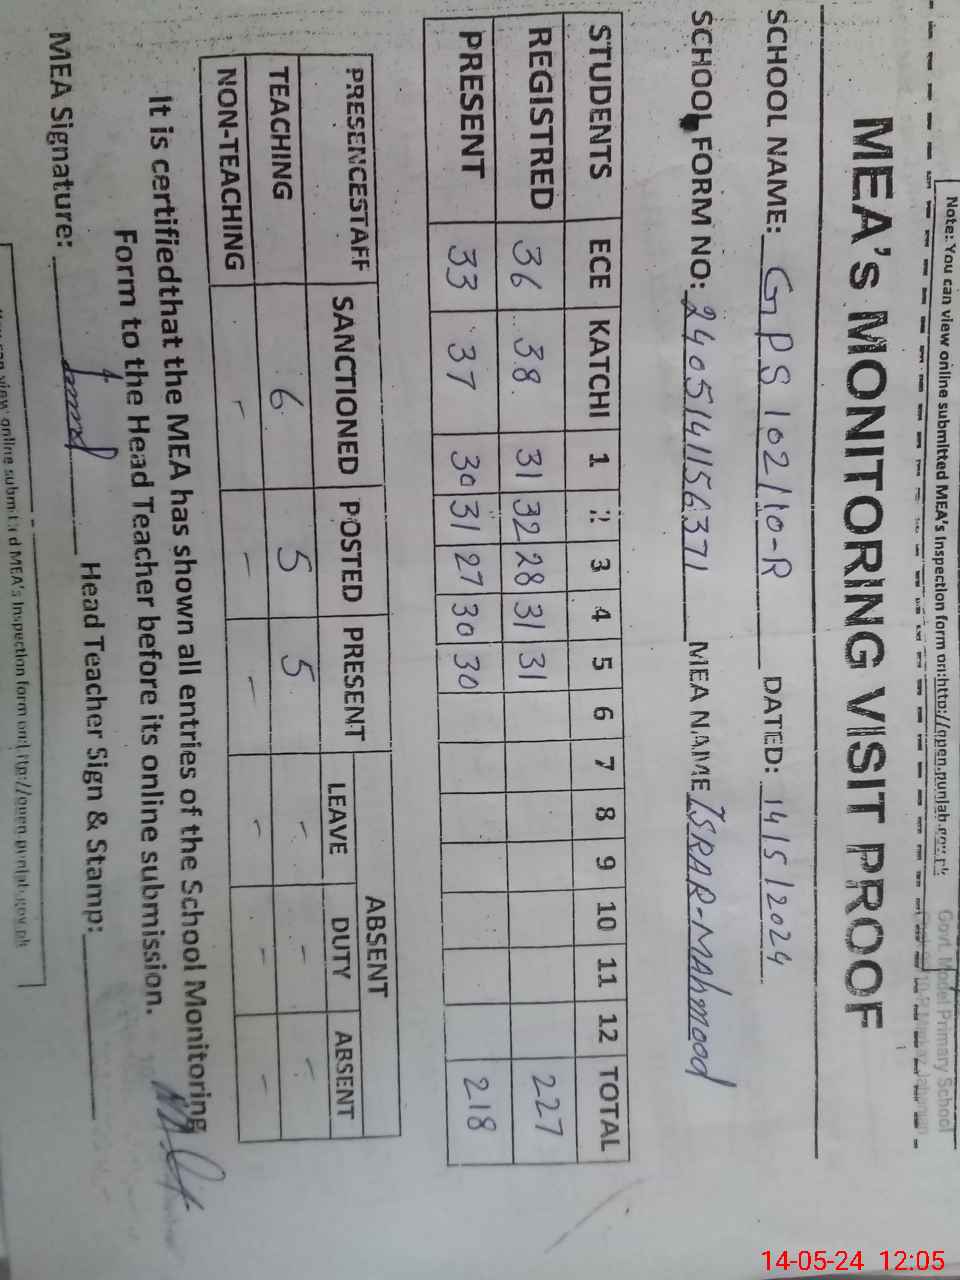 Note: You can view online submitted MEA's Inspection form on:http://open.punjab.gov.pk
Govt. Model Primary School
MEA's MONITORING VISIT PROOF
SCHOOL NAME: GPS 102/10-R DATED: 14/5/2024
SCHOOL FORM NO: 2405141156371 MEA NAME ISRAR-Mahmood
STUDENTS ECE KATCHI 1 2 3 4 5 6 7 8 9 10 11 12 TOTAL
REGISTRED 36 38 31 32 28 31 31 227
PRESENT 33 37 30 31 27 30 30 218
PRESENCESTAFF SANCTIONED POSTED PRESENT ABSENT
LEAVE DUTY ABSENT
TEACHING 6 5 5 - - -
NON-TEACHING - - - - - -
It is certifiedthat the MEA has shown all entries of the School Monitoring
Form to the Head Teacher before its online submission.
MEA Signature: Head Teacher Sign & Stamp:
view online submitted MEA's Inspection form on:http://open.punjab.gov.pk
14-05-24 12:05